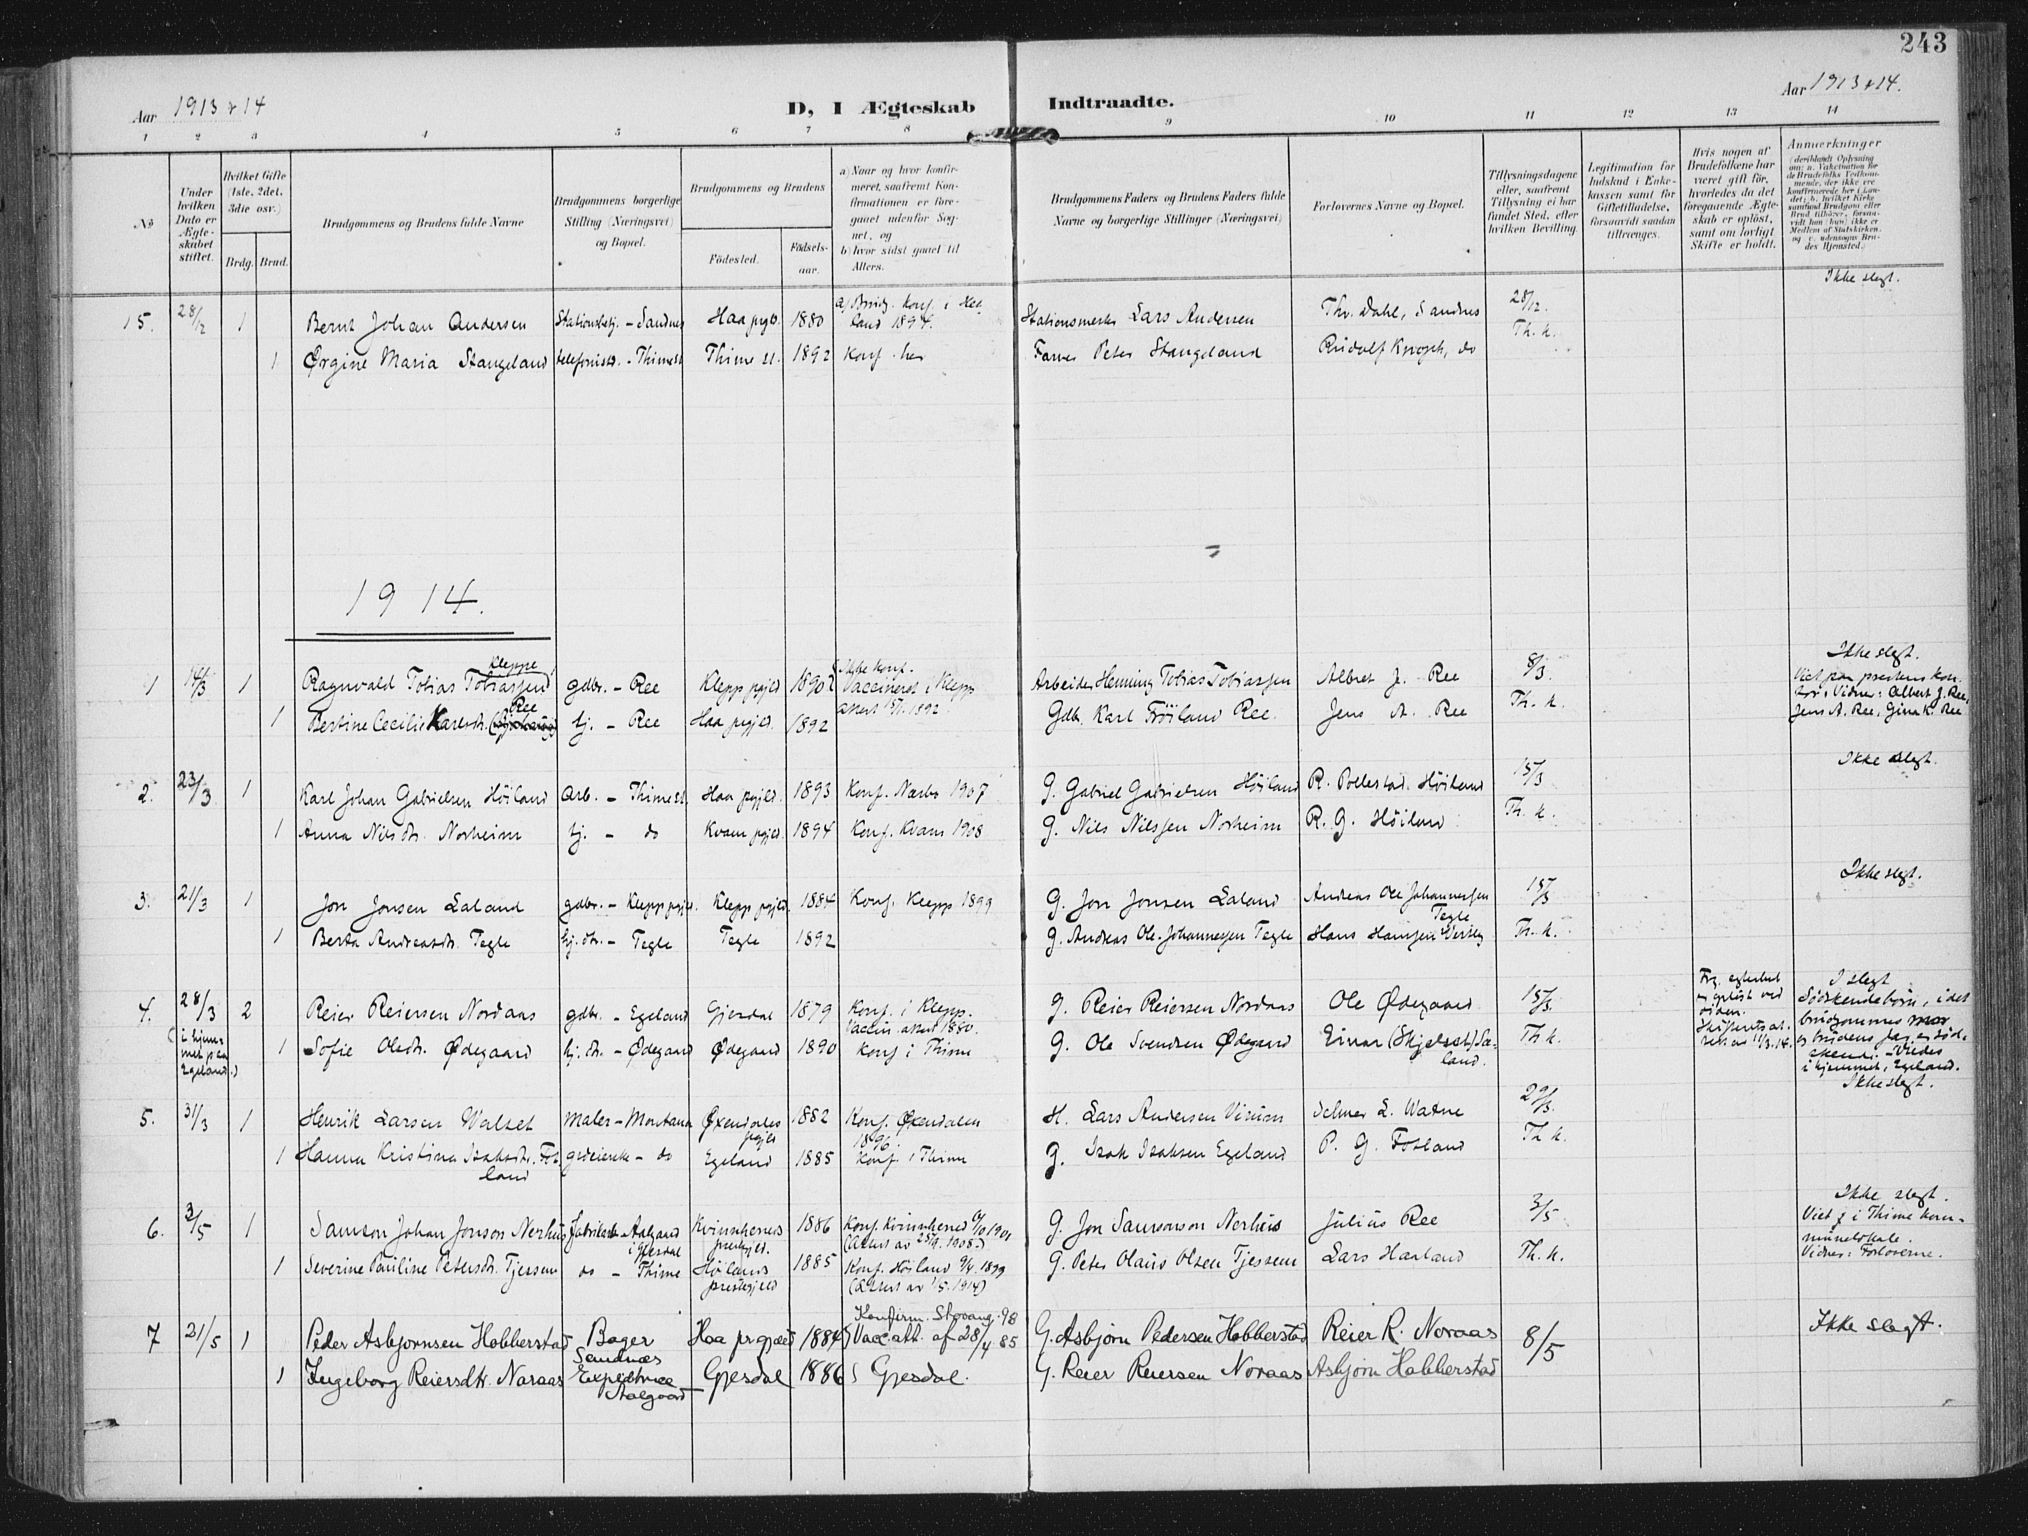 243
Aar 1913 & 14
D, I Ægteskab Indtraadte.
Aar 1913 & 14.
1 2 3 4 5 6 7 8 9 10 11 12 13 14
No
Under hvilken Dato er Ægteskabet stiftet.
Hvilket Gifte (1ste, 2det, 3die osv.)
Brdg. Brud.
Brudgommens og Brudens fulde Navne
Brudgommens borgerlige Stilling (Næringsvei) og Bopæl.
Brudgommens og Brudens
Fødested.
Fødselsaar.
a) Naar og hvor konfirmeret, saafremt Konfirmationen er foregaaet udenfor Sognet, og
b) hvor sidst gaaet til Alters.
Brudgommens Faders og Brudens Faders fulde Navne og borgerlige Stillinger (Næringsvei)
Forlovernes Navne og Bopæl.
Tillysningsdagene eller, saafremt Tillysning ei har fundet Sted, efter hvilken Bevilling.
Legitimation for Indskud i Enkekassen samt for Giftetilladelse, forsaavidt saadan tiltrænges.
Hvis nogen af Brudefolkene har været gift før, hvorledes da det foregaaende Ægteskab er opløst, samt om lovligt Skifte er holdt.
Anmærkninger
(deriblandt Oplysning om: a. Vaksination for de Brudefolks Vedkommende, der ikke ere konfirmerede her i Landet; b. hvilket Kirkesamfund Brudgom eller Brud tilhører, forsaavidt han (hun) ikke er Medlem af Statskirken, og c. udensogns Brudes Hjemsted.)
Ikke slegt.
15. 28/12 1 Bernt Johan Andersen Stationsbetj. - Sandnes Haa pgjd. 1880 a) Brudg. konf. i Hetland 1894. Stationsmester Lars Andersen Thv. Dahl, Sandnes 28/12.
1 Ørgine Maria Stangeland telefonistd. - Thime st. Thime st. 1892 Konf. her Farver Peter Stangeland Rudolf Krogh, do Th. k.
1914.
1 14/3 1 Ragnvald Tobias Tobiassen Kleppe gdbr. - Ree Klepp pgjld 1890 Ikke konf. Vaccineret i Klepp attest 1892 Arbeider Henning Tobias Tobiassen Albret J. Ree 8/3. Ikke slegt.
Viet paa prestens kontor. Vidner: Albert J. Ree, Jens A. Ree, Gina K. Ree
1 Bertine Cecilie Karlsdtr. Ree hj. - Ree Haa pgjld. 1892 Gdb. Karl Frøiland Ree. Jens A. Ree Th. k.
2. 23/3 1 Karl Johan Gabrielsen Høiland Arb. - Thime st. Haa pgjld. 1893 Konf. Nærbø 1907 G. Gabriel Gabrielsen Høiland R. Pollestad. Høiland 15/3 Ikke slegt.
1 Anna Nilsdtr. Norheim hj. - do Kvam pgjld. 1894 Konf. Kvam 1908 G. Nils Nilssen Norheim R. G. Høiland Th. k.
3. 21/3 1 Jon Jonsen Laland gdbr. - Klepp pgjd. Klepp pgjld. 1884 Konf. Klepp 1899 G. Jon Jonsen Laland Andreas Ole Johannessen Tegle 15/3 Ikke slegt.
1 Berta Andreasdtr. Tegle hj. dtr. - Tegle Tegle 1892 G. Andreas Ole Johannessen Tegle Hans Hansen Th. k.
4. 28/3 2 Reier Reiersen Nordaas gdbr. - Egeland Gjesdal 1879 Konf. i Klepp. Vaccin. attest 1880. G. Reier Reiersen Nordaas Ole Ødegaard 15/3. I slegt
(i hjemmet paa Egeland.)
1 Sofie Olsdtr. Ødegaard hj. dtr. - Ødegaard Ødegaard 1890 Konf i Thime G. Ole Svendsen Ødegaard Einar (Skjelsst) Sæland. Th k.
Søskendebørn, i det brudgommens mor og brudens far er søskende. - Viedes i hjemmet, Egeland.
5. 31/3 1 Henrik Larsen Walset Maler - Montana Øxendalens pgjld 1882 Konf. Øxendalen 1896. H. Lars Andersen Selmer L. Watne 29/3. Ikke slegt.
1 Hanna Kristina Isaksdtr. Fosland gdeierske - do Egeland 1885 Konf i Thime G. Isak Isaksen Egeland P. G. Fosland Th k.
6. 3/5 1 Samson Johan Jonson Nerhus Fabrikarb - Aalgaard i Gjesdal Kvinnherred prestgjld. 1886 Konf. Kvinnhered 1901 (Attest av 25/9. 1908.) G. Jon Samsonson Nerhus Julius Ree 3/5 Ikke slegt.
Viet i Thime kommunelokale. Vidner: Forloverne.
1 Severine Pauline Petersdtr. Tjessem do - Thime Høilands prestegjeld 1885 Konf. Høiland 1899 (Attest av 1/5. 1914) G. Peter Olaus Olsen Tjessem Lars Haaland Th. k.
7 21/5 1 Peder Asbjørnsen Hobberstad Bager Sandnæs Haa prgjæld 1884 Konfirm. Stavang. 98 Vacc att. af 28/4 85 G. Asbjørn Pedersen Hobberstad Reier R. Noraas 8/5 Ikke slegt.
1 Ingeborg Reiersdtr. Noraas Expeditrice Aalgaard Gjesdal 1886 Gjesdal. G. Reier Reiersen Noraas Asbjørn Hobberstad